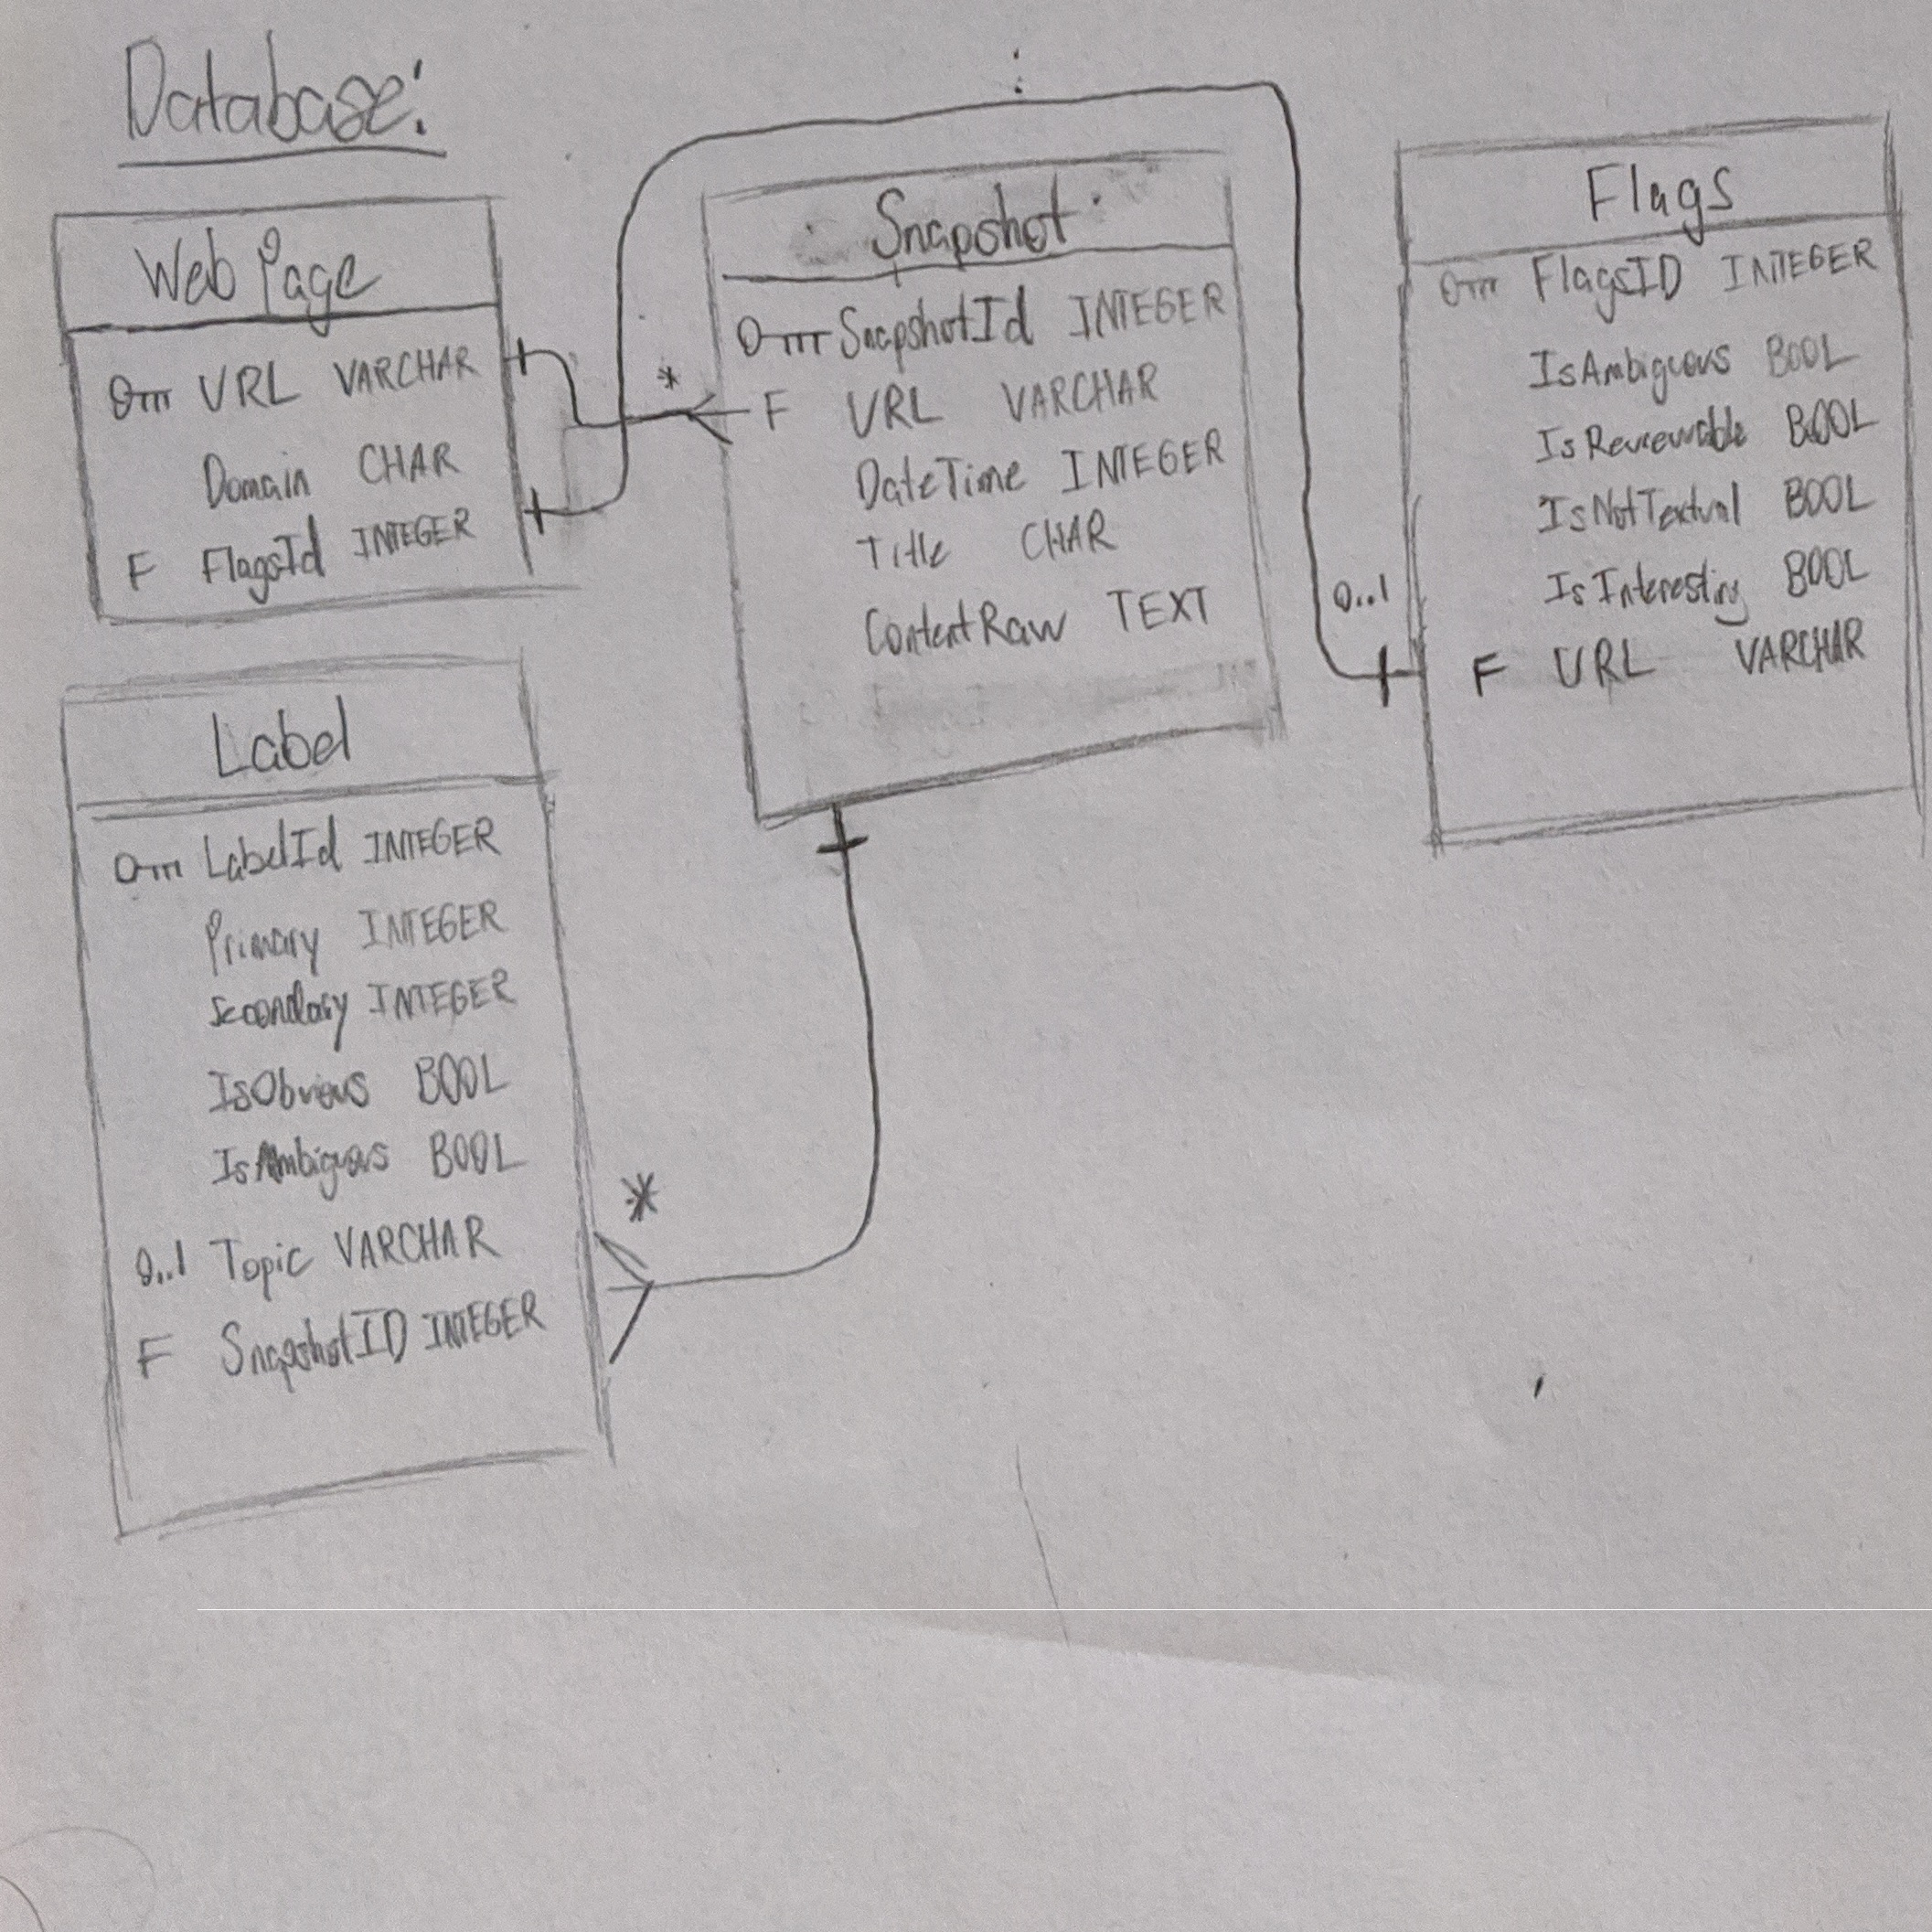 Database:
Web Page
URL VARCHAR
Domain CHAR
F FlagsId INTEGER
*
Snapshot
SnapshotId INTEGER
F URL VARCHAR
DateTime INTEGER
Title CHAR
ContentRaw TEXT
Flags
FlagsID INTEGER
IsAmbiguous BOOL
IsReviewable BOOL
IsNotTextual BOOL
IsInteresting BOOL
0..1
F URL VARCHAR
Label
LabelId INTEGER
Primary INTEGER
Secondary INTEGER
IsObvious BOOL
IsAmbiguous BOOL
0..1 Topic VARCHAR
F SnapshotID INTEGER
*